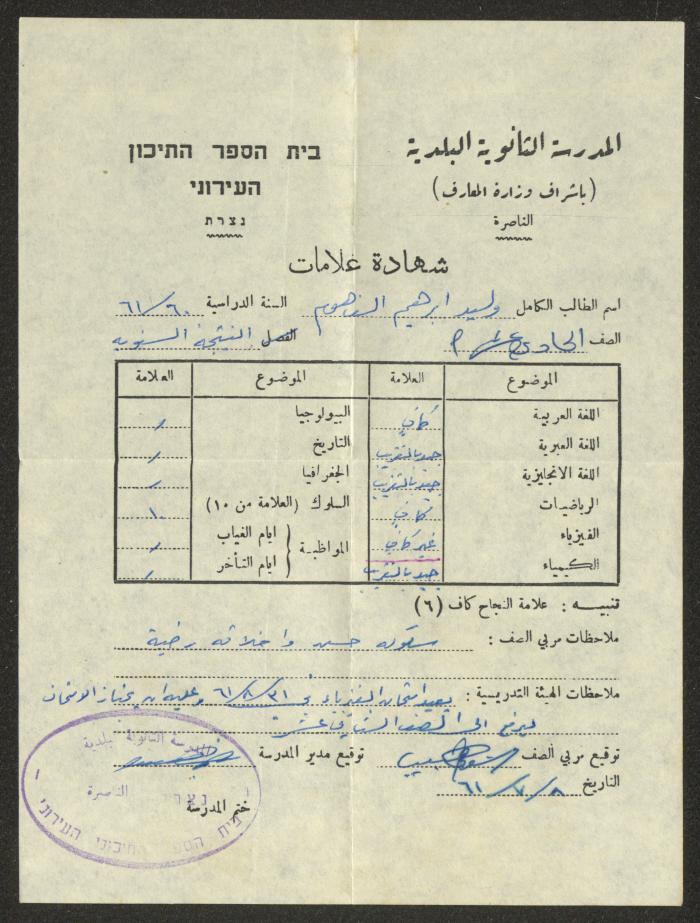 المدرسة الثانوية البلدية
(باشراف وزارة المعارف)
الناصرة
בית הספר התיכון
העירוני
נצרת
شهادة علامات
اسم الطالب الكامل وليد ابرهيم الفاهوم السنة الدراسية ٦٠/٦١
الصف الحادي عشر الفصل النتيجة السنوية
الموضوع العلامة الموضوع العلامة
اللغة العربية كافٍ البيولوجيا /
اللغة العبرية جيد بالتقريب التاريخ /
اللغة الانجليزية جيد بالتقريب الجغرافيا /
الرياضيات كافٍ السلوك (العلامة من ١٠) ١٠
الفيزياء غير كافٍ المواظبة ايام الغياب /
الكيمياء جيد بالتقريب ايام التأخر /
تنبيه : علامة النجاح كاف (٦)
ملاحظات مربي الصف : سلوكه حسن واخلاقه رضية
ملاحظات الهيئة التدريسية : يعيد امتحان الفيزياء في ٣١/٨/٦١ وعليه ان يجتاز الامتحان
ليرفع الى الصف الثاني عشر
توقيع مربي الصف توقيع مدير المدرسة
التاريخ ٨/٧/٦١
ختم المدرسة
المدرسة الثانوية البلدية
الناصرة נצרת
בית הספר התיכוני העירוני